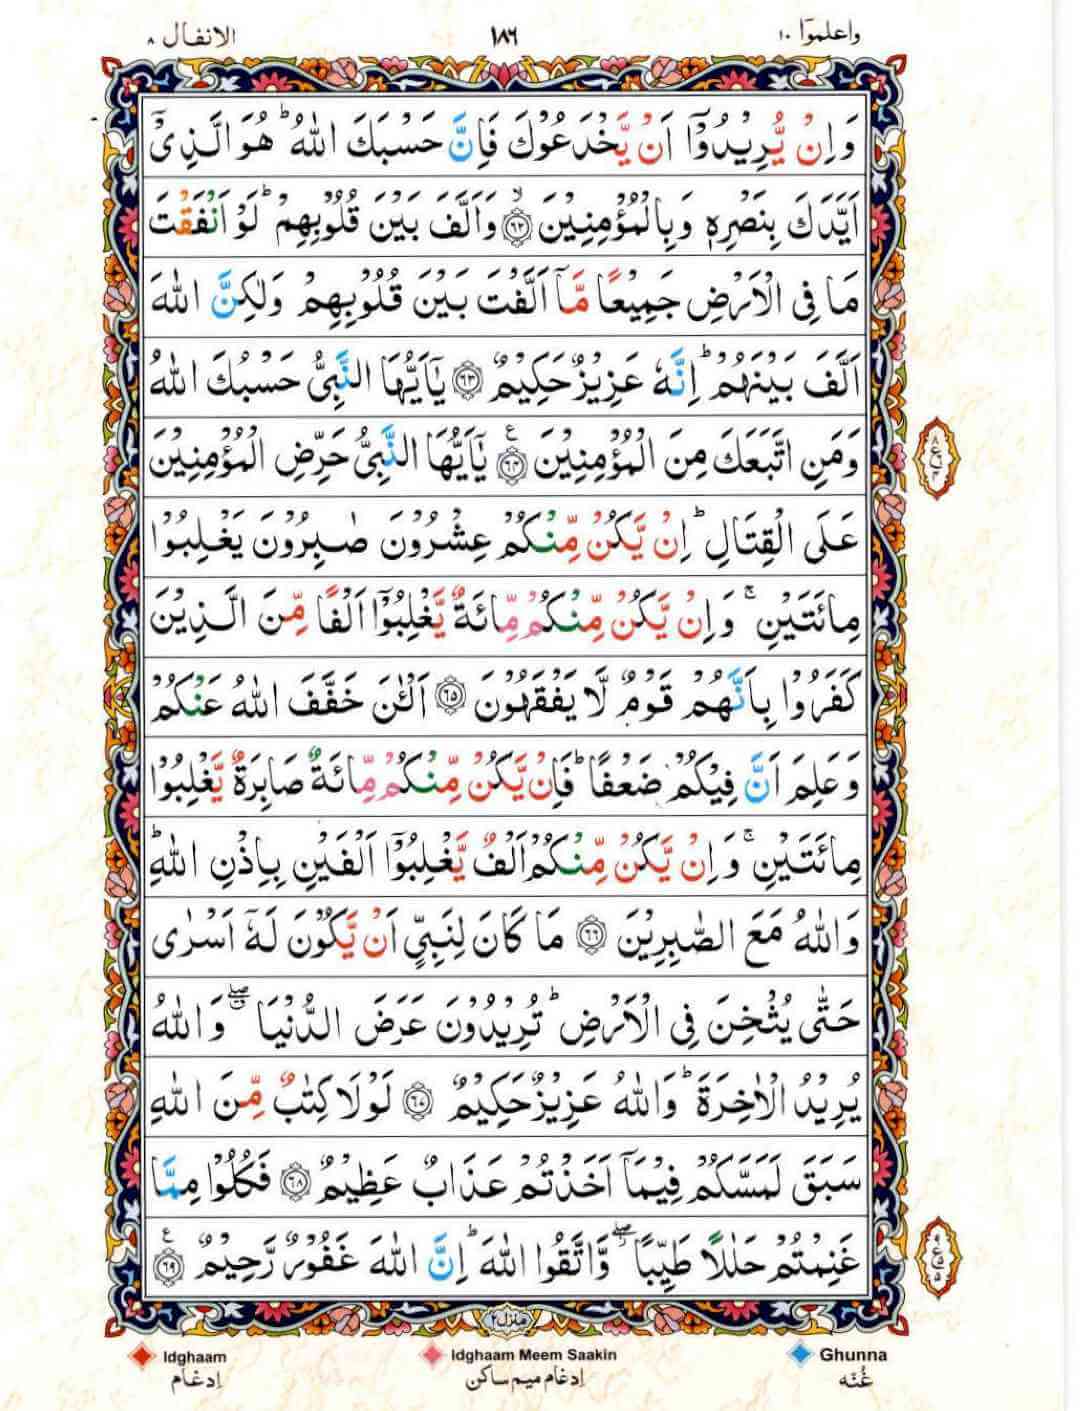 واعلموٓا ١٠
١٨٦
الانفال ٨
وَاِنْ يُّرِيْدُوْٓا اَنْ يَّخْدَعُوْكَ فَاِنَّ حَسْبَكَ اللّٰهُ ؕ هُوَ الَّذِيْٓ
اَيَّدَكَ بِنَصْرِهٖ وَبِالْمُؤْمِنِيْنَ ۙ ﴿٦٢﴾ وَاَلَّفَ بَيْنَ قُلُوْبِهِمْ ؕ لَوْ اَنْفَقْتَ
مَا فِى الْاَرْضِ جَمِيْعًا مَّاۤ اَلَّفْتَ بَيْنَ قُلُوْبِهِمْ وَلٰكِنَّ اللّٰهَ
اَلَّفَ بَيْنَهُمْ ؕ اِنَّهٗ عَزِيْزٌ حَكِيْمٌ ﴿٦٣﴾ يٰۤاَيُّهَا النَّبِىُّ حَسْبُكَ اللّٰهُ
وَمَنِ اتَّبَعَكَ مِنَ الْمُؤْمِنِيْنَ ﴿٦٤﴾ ع يٰۤاَيُّهَا النَّبِىُّ حَرِّضِ الْمُؤْمِنِيْنَ
عَلَى الْقِتَالِ ؕ اِنْ يَّكُنْ مِّنْكُمْ عِشْرُوْنَ صٰبِرُوْنَ يَغْلِبُوْا
مِائَتَيْنِ ۚ وَاِنْ يَّكُنْ مِّنْكُمْ مِّائَةٌ يَّغْلِبُوْۤا اَلْفًا مِّنَ الَّذِيْنَ
كَفَرُوْا بِاَنَّهُمْ قَوْمٌ لَّا يَفْقَهُوْنَ ﴿٦٥﴾ اَلْـٰٔنَ خَفَّفَ اللّٰهُ عَنْكُمْ
وَعَلِمَ اَنَّ فِيْكُمْ ضَعْفًا ؕ فَاِنْ يَّكُنْ مِّنْكُمْ مِّائَةٌ صَابِرَةٌ يَّغْلِبُوْا
مِائَتَيْنِ ۚ وَاِنْ يَّكُنْ مِّنْكُمْ اَلْفٌ يَّغْلِبُوْۤا اَلْفَيْنِ بِاِذْنِ اللّٰهِ ؕ
وَاللّٰهُ مَعَ الصّٰبِرِيْنَ ﴿٦٦﴾ مَا كَانَ لِنَبِىٍّ اَنْ يَّكُوْنَ لَهٗۤ اَسْرٰى
حَتّٰى يُثْخِنَ فِى الْاَرْضِ ؕ تُرِيْدُوْنَ عَرَضَ الدُّنْيَا ۖ وَاللّٰهُ
يُرِيْدُ الْاٰخِرَةَ ؕ وَاللّٰهُ عَزِيْزٌ حَكِيْمٌ ﴿٦٧﴾ لَوْلَا كِتٰبٌ مِّنَ اللّٰهِ
سَبَقَ لَمَسَّكُمْ فِيْمَاۤ اَخَذْتُمْ عَذَابٌ عَظِيْمٌ ﴿٦٨﴾ فَكُلُوْا مِمَّا
غَنِمْتُمْ حَلٰلًا طَيِّبًا ۖ وَّاتَّقُوا اللّٰهَ ؕ اِنَّ اللّٰهَ غَفُوْرٌ رَّحِيْمٌ ﴿٦٩﴾ ع
منزل ٢
Idghaam
Idghaam Meem Saakin
Ghunna
اِدغَام
اِدغَام میم ساکن
غُنّه